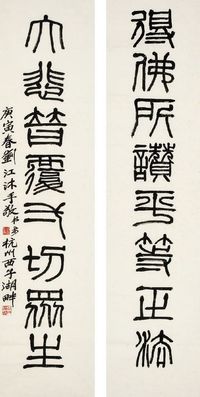 得佛所讚平等正法
大悲普覆弌切眾生
庚寅春劉江沐手敬書於杭州西子湖畔